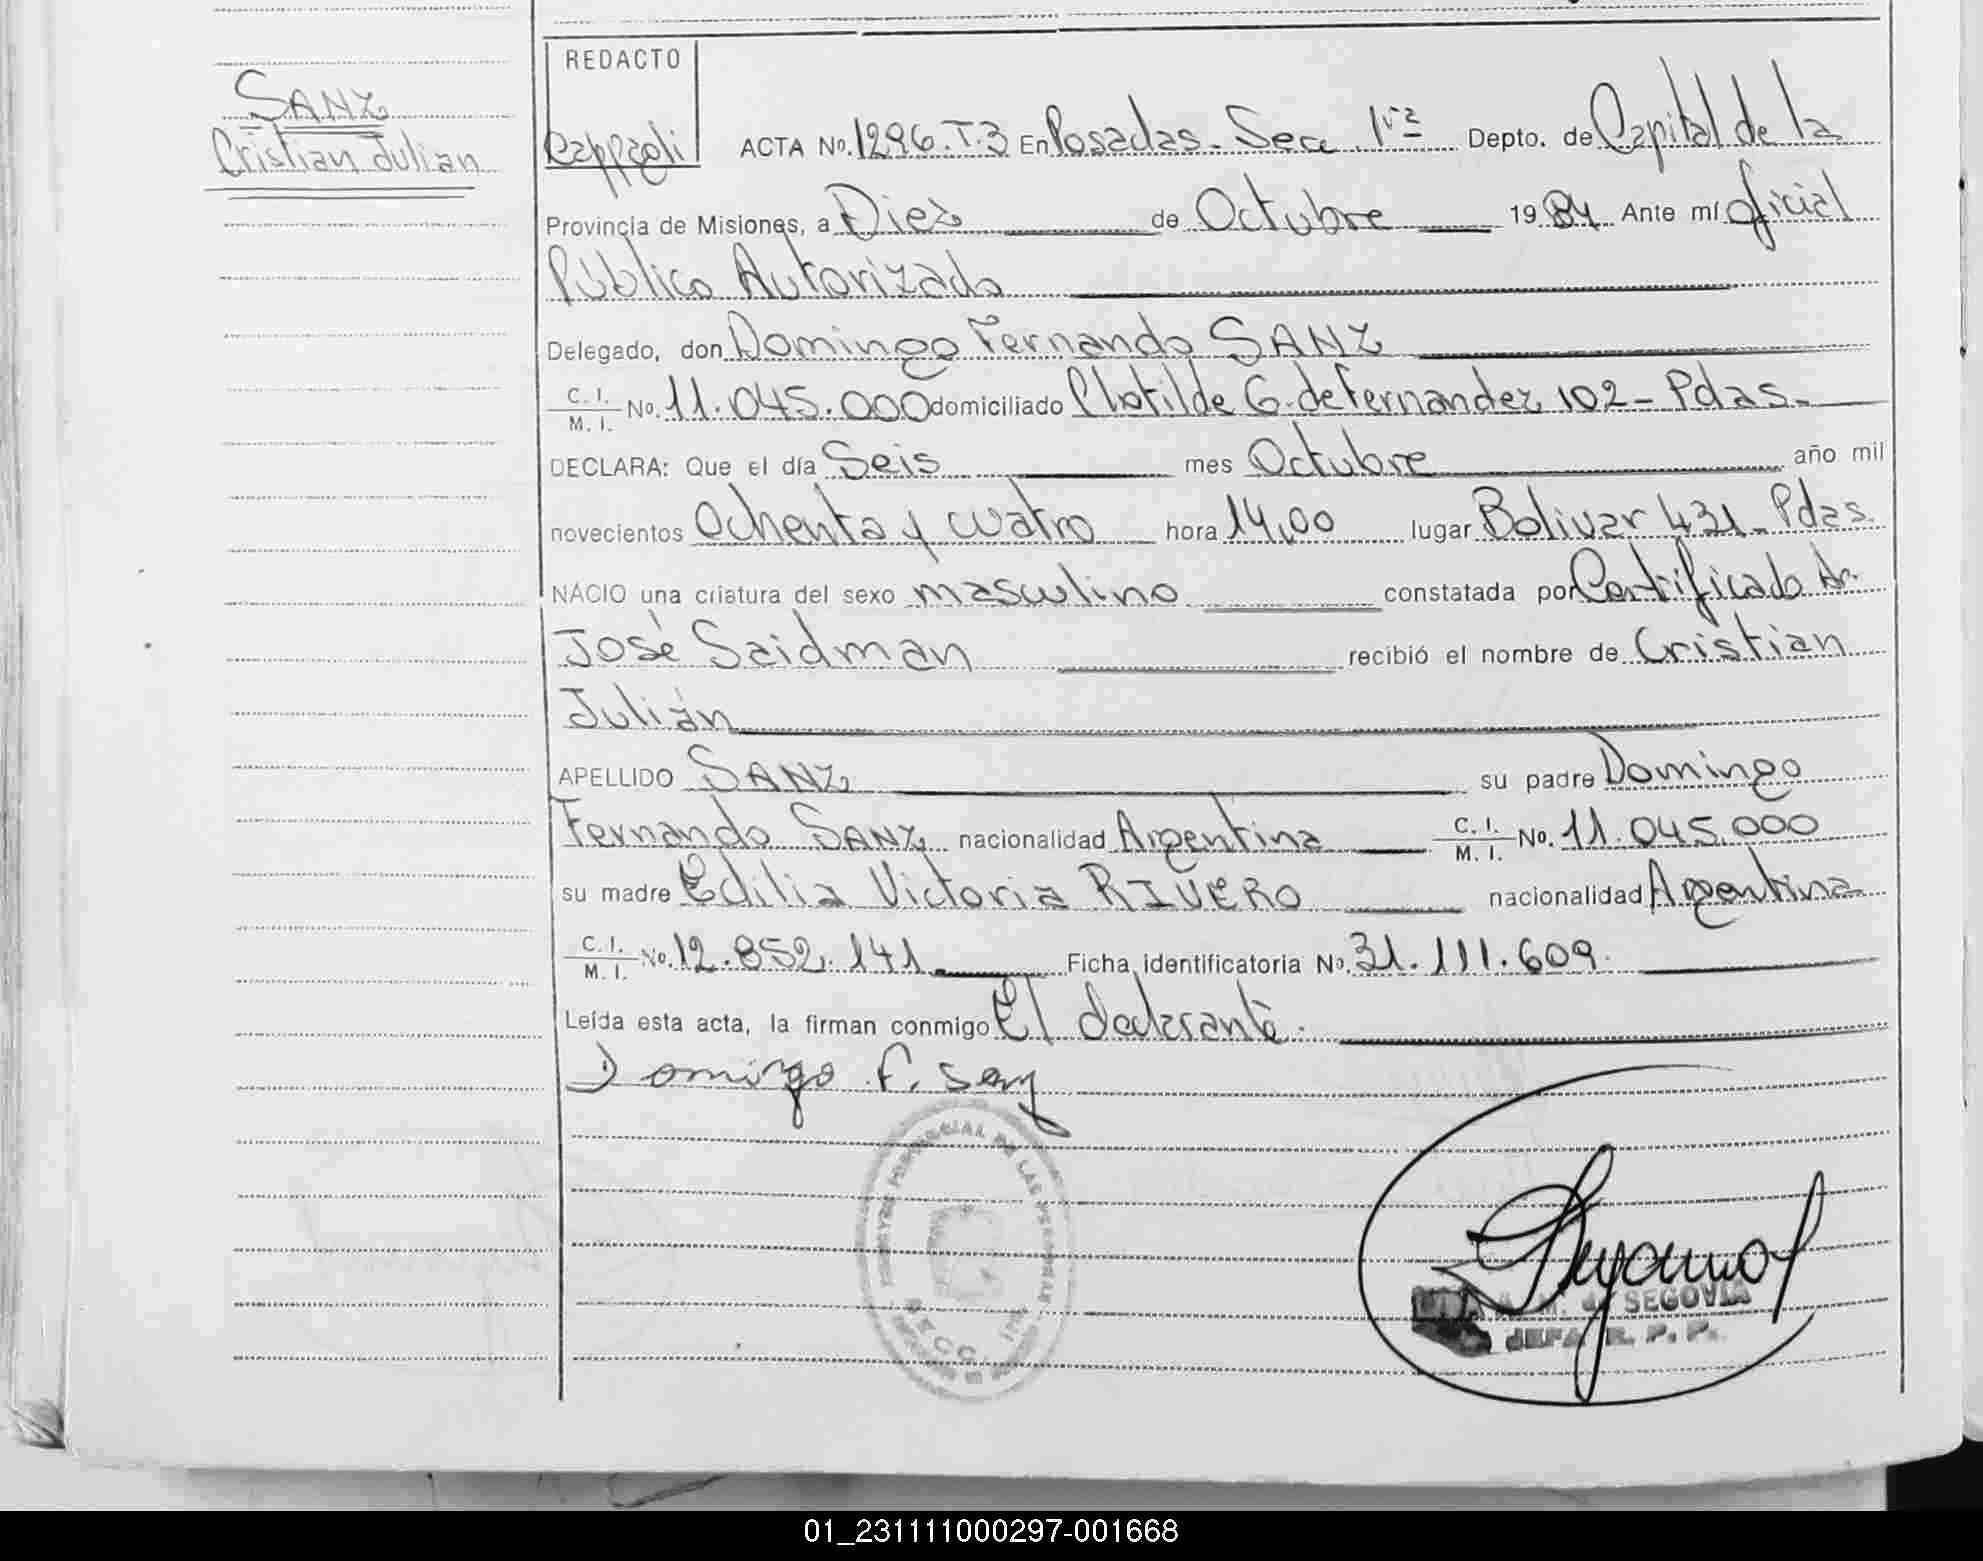 SANZ
Cristian Julian
REDACTO
Cappagli
ACTA No. 1296.T.3 En Posadas. Secc. 1ra Depto. de Capital de la
Provincia de Misiones, a Diez de Octubre 1984 Ante mí Oficial
Público Autorizado
Delegado, don Domingo Fernando SANZ
C. I.
M. I. No. 11.045.000 domiciliado Clotilde G. de Fernandez 102 - Pdas.
DECLARA: Que el día Seis mes Octubre año mil
novecientos Ochenta y cuatro hora 14,00 lugar Bolivar 431 - Pdas.
NACIO una criatura del sexo masculino constatada por Certificado de
José Saidman recibió el nombre de Cristian
Julián
APELLIDO SANZ su padre Domingo
Fernando SANZ nacionalidad Argentina C. I.
M. I. No. 11.045.000
su madre Edilia Victoria RIVERO nacionalidad Argentina
C. I.
M. I. No. 12.852.141 Ficha identificatoria No. 31.111.609.
Leída esta acta, la firman conmigo El declarante.
Domingo F. Sanz
PROVINCIAL DE LAS PERSONAS
M. de SEGOVIA
JEFA R. P. P.
01_231111000297-001668